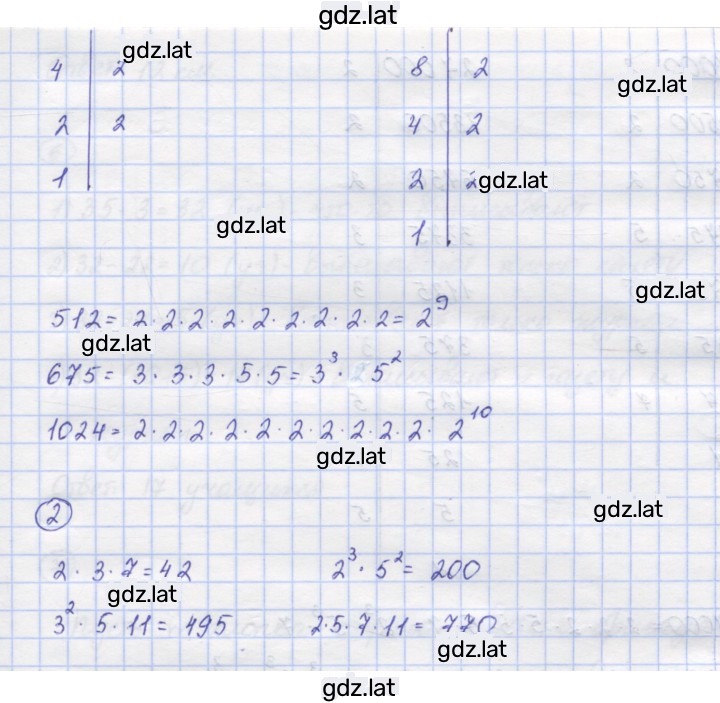 gdz.lat
gdz.lat
4 | 2    8 | 2
gdz.lat
2 | 2    4 | 2
1 |    2 | 2 gdz.lat
gdz.lat    1 |
gdz.lat
512 = 2·2·2·2·2·2·2·2·2 = 2⁹
gdz.lat
675 = 3·3·3·5·5 = 3³·5²
1024 = 2·2·2·2·2·2·2·2·2·2· 2¹⁰
gdz.lat
2
gdz.lat
2·3·7 = 42    2³·5² = 200
gdz.lat
3²·5·11 = 495    2·5·7·11 = 770
gdz.lat
gdz.lat